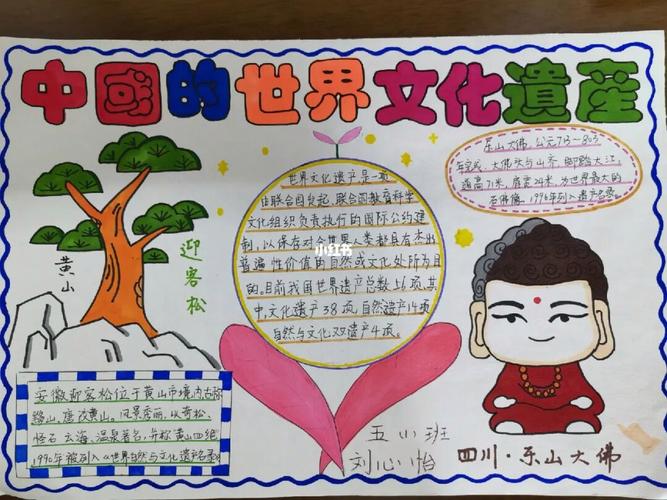 中國的世界文化遺産
世界文化遗产是一项
由联合国发起、联合国教育科学
文化组织负责执行的国际公约建
制,以保存对全世界人类都具有杰出
普遍性价值的自然或文化处所为目
的。目前我国世界遗产总数56项,其
中,文化遗产38项,自然遗产14项
自然与文化双遗产4项。
小红书
乐山大佛,公元713~803
年完成,大佛头与山齐,脚踏大江,
通高71米,肩宽24米,为世界最大的
石佛像,1996年列入遗产名录
黄山
迎客松
安徽迎客松位于黄山市境内古称
黟山,唐改黄山。风景秀丽,以奇松、
怪石、云海、温泉著名,并称黄山四绝
1990年被列入《世界自然与文化遗产名录》
五小班
刘心小怡
四川·乐山大佛